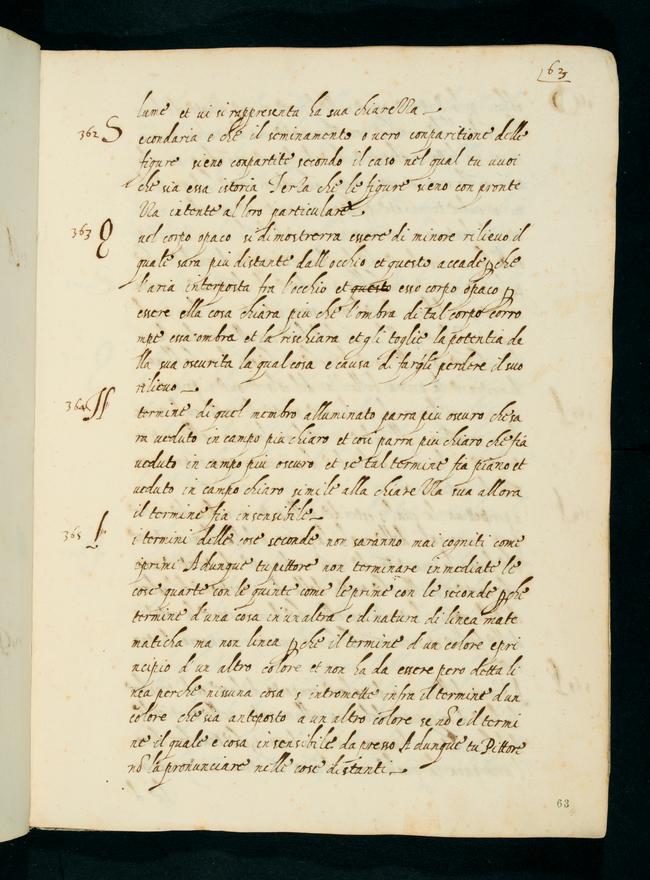 63
lume et vi si rappresenta ha sua chiarezza
362 S
econdaria e che il seminamento overo conpartitione delle
figure sieno conpartite secondo il caso nel qual tu vuoi
che sia essa istoria Terza che le figure sieno con pronte
zza intente al loro particulare
363 Q
uel corpo opaco si dimosterra essere di minore rilievo il
quale sara più distante dall'occhio et questo accade ꝑche
l'aria interposta fra l'occhio et questo esso corpo opaco ꝑ
essere ella cosa chiara piu che l'ombra di tal corpo corro
mpe essa ombra et la rischiara et gli toglie la potentia de
lla sua oscurita la qual cosa e causa di fargli perdere il suo
rilievo
364 Il
termine di quel membro alluminato parra piu oscuro che sa
ra veduto in campo piu chiaro et cosi parra piu chiaro che fia
veduto in campo piu oscuro et se tal termine fia piano et
veduto in campo chiaro simile alla chiarezza sua allora
il termine fia insensibile
365 I
i termini delle cose seconde non saranno mai cogniti come
e primi Adunque tu pittore non terminare inmediate le
cose quarte con le quinte come le prime con le seconde ꝑche
termine d'una cosa in un altra e di natura di linea mate
maticha ma non linea ꝑche il termine d'un colore e pri
ncipio d'un altro colore et non ha da essere pero detta li
nea perche nissuna cosa s'intromette infra il termine d'un
colore che sia anteposto a un altro colore se nō e il termi
ne il quale e cosa insensibile da presso Adunque tu Pittore
nō la pronunciare nelle cose distanti
63